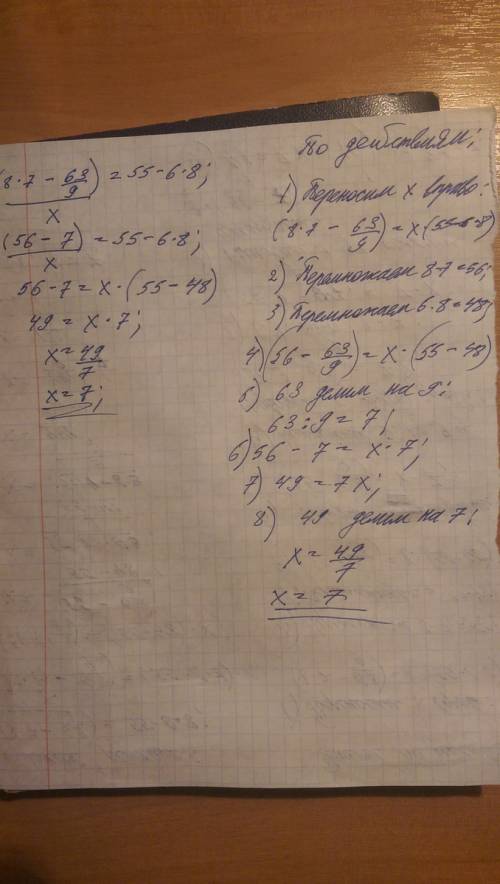 (8·7 - 63/9)/x = 55-6·8;
(56 - 7)/x = 55-6·8;
56-7 = x·(55-48)
49 = x·7;
x = 49/7
x = 7;
По действиям:
1) Переносим x вправо:
(8·7 - 63/9) = x(55-6·8)
2) Перемножаем 8·7=56;
3) Перемножаем 6·8=48;
4) (56 - 63/9) = x·(55-48)
5) 63 делим на 9:
63:9 = 7;
6) 56 - 7 = x·7;
7) 49 = 7x;
8) 49 делим на 7:
x = 49/7
x = 7